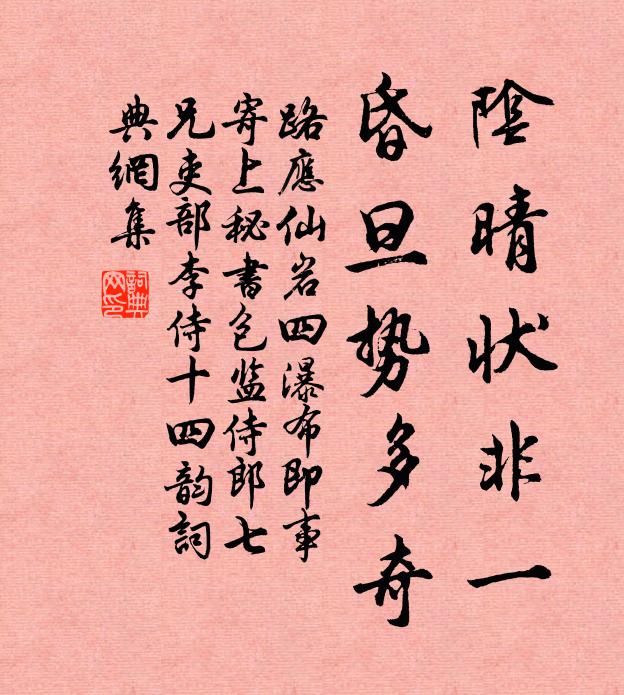 陰晴狀非一
昏旦势多奇
路應仙岩四瀑布即事
寄上秘書包监侍郎七
兄吏部李侍十四韵詞
典網集
詞典
网印